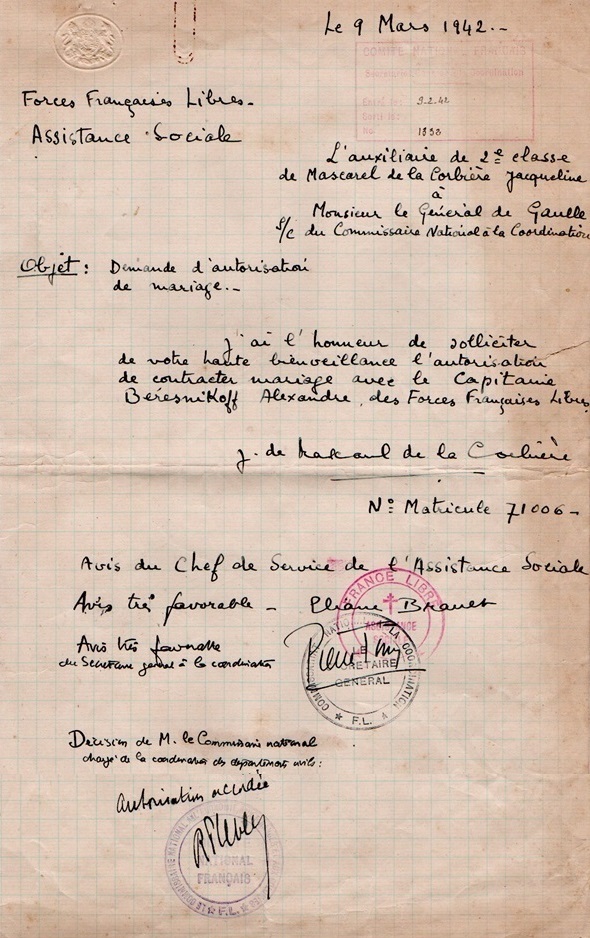 Le 9 Mars 1942.-
COMITÉ NATIONAL FRANÇAIS
9.2.42
No 1898
Forces Françaises Libres-
Assistance Sociale
L'auxiliaire de 2e classe
de Mascarel de la Corbière Jacqueline
à
Monsieur le Général de Gaulle
s/c du Commissaire National à la Coordination
Objet : Demande d'autorisation
de mariage.-
J'ai l'honneur de solliciter
de votre haute bienveillance l'autorisation
de contracter mariage avec le Capitaine
Béresnikoff Alexandre, des Forces Françaises Libres
J. de Mascarel de la Corbière
No Matricule 71006-
Avis du Chef de Service de l'Assistance Sociale
Avis très favorable - Eliane Brault
FRANCE LIBRE
Avis très favorable
du Secrétaire général à la coordination
LE
SECRÉTAIRE
GÉNÉRAL
COMMISSARIAT NATIONAL A LA COORDINATION
F.L.
Décision de M. le Commissaire national
chargé de la coordination des départements civils :
Autorisation accordée
R Pleven
NATIONAL
FRANÇAIS
F.L.